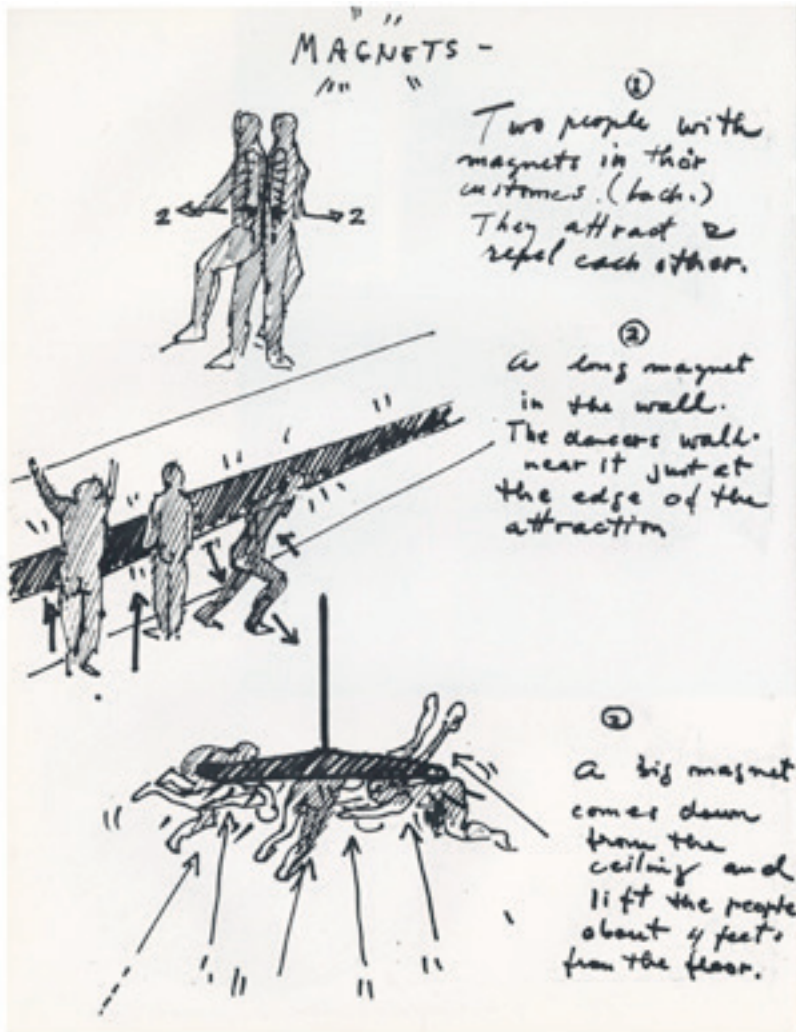 MAGNETS -
①
Two people with
magnets in their
customes. (back.)
They attract &
repel each other.
2
2
②
a long magnet
in the wall.
The dancers walk
near it just at
the edge of the
attraction
a big magnet
comes down
from the
ceiling and
lift the people
about 4 feets
from the floor.